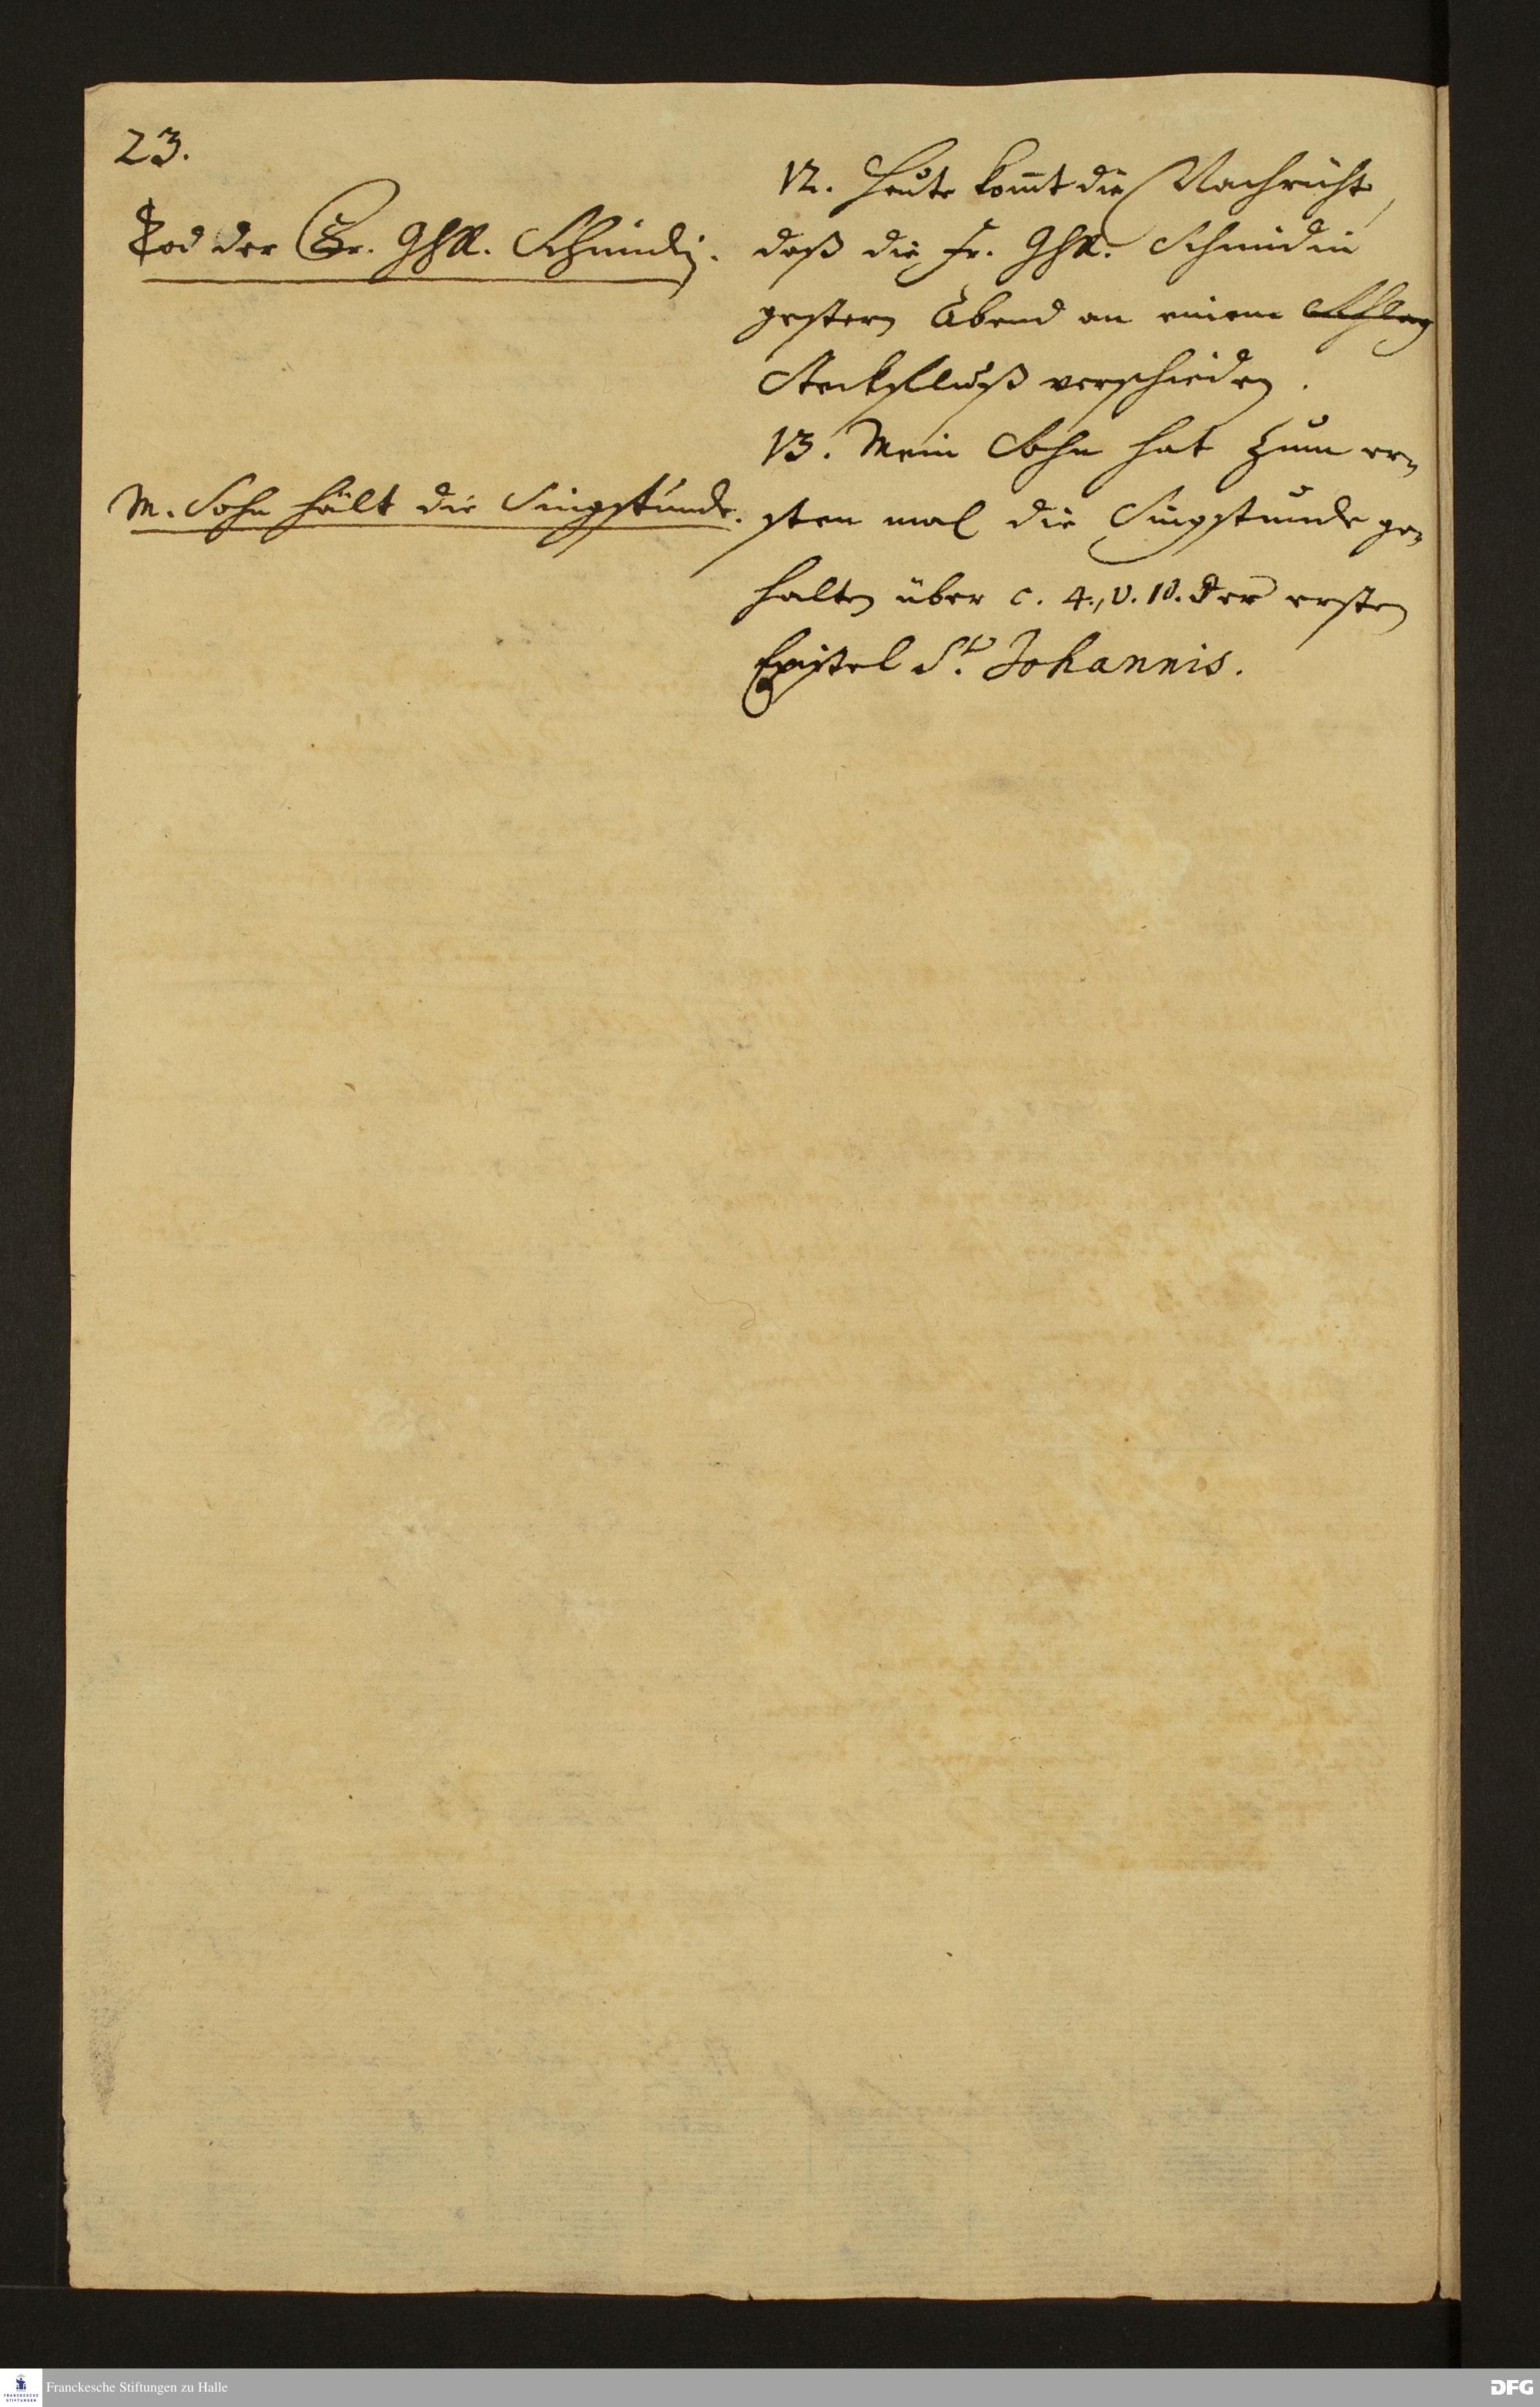 23.
Tod der Fr. GhR. Schmidin.
12. Heute kommt die Nachricht,
daß die Fr. GhR. Schmidin
gestern Abend an einem Schlag
Steckfluß verschieden.
13. Mein Sohn hat zum er-
M. Sohn hält die Singstunde.
sten mal die Singstunde ge-
halten über c. 4., v. 10. der ersten
Epistel St. Johannis.
FRANCKESCHE STIFTUNGEN
Franckesche Stiftungen zu Halle
DFG